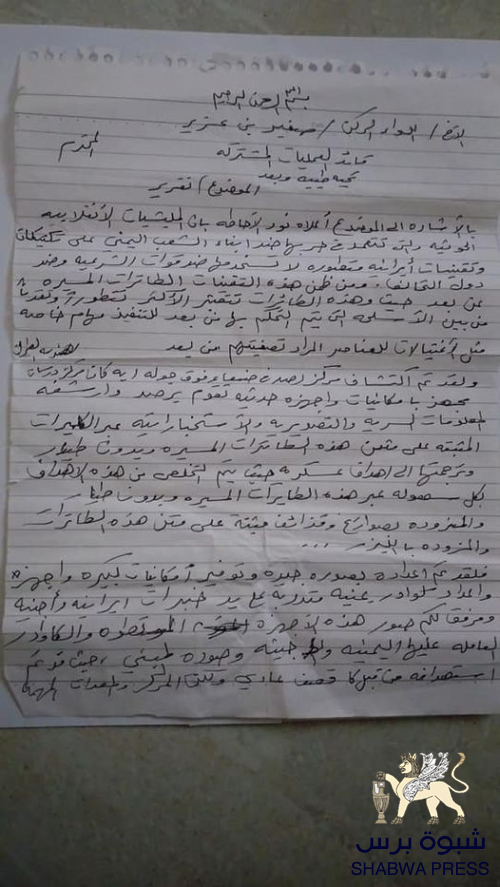 بسم الله الرحمن الرحيم
الأخ / اللواء الركن / صغير بن عزيز
قائد العمليات المشتركة المحترم
تحيه طيبه وبعد
الموضوع / تقرير
بالأشاره الى الموضوع أعلاه نود الأحاطه بان المليشيات الأنقلابيه
الحوثيه والتي تعتمد في حربها ضد ابناء الشعب اليمني على تكتيكات
وتقنيات أيرانيه متطوره لاستخدمها ضد قوات الشرعيه وضد
دول التحالف. ومن ضمن هذه التقنيات الطائرات المسيره
عن بعد حيث وهذه الطائرات تعتبر الأكثر تطوراً وتقدماً
من بين الأسلحه التي يتم التحكم بها من بعد لتنفيذ مهام خاصه
مثل أغتيالات للعناصر المراد تصفيتهم من بعد
ولقد تم اكتشاف مركز لصدفي صنعاء فوق جولة ايه كان مركز
مجهز بامكانيات واجهزه حديثه يقوم برصد وارشفة
المعلومات السريه والتصويريه والأستخباراتيه عبر الكاميرات
المثبته على متن هذه الطائرات المسيره وبدون طيار
وترجمتها الى اهداف عسكريه حيث يتم التخلص من هذه الأهداف
بكل سهوله عبر هذه الطايرات المسيره وبدون طيار
والمزوده بصواريخ وقذائف مثبته على متن هذه الطائرات
والمزوده بالليزر ...
فلقد تم أعداده بصوره جيده وتوفير أمكانيات كبيره واجهزه
واعداد كوادر يمنيه متدربه على يد خبراء ايرانيه وأجنبيه
ومرفقا لكم صور هذه الأجهزه المتطوره والكوادر
العامله عليها اليمنيه والأجنبيه وصوره ، حيث قد تم
استهدافه من قبل قصف عادي ولكن المركز والمعدات المهمه
شبوة برس
SHABWA PRESS